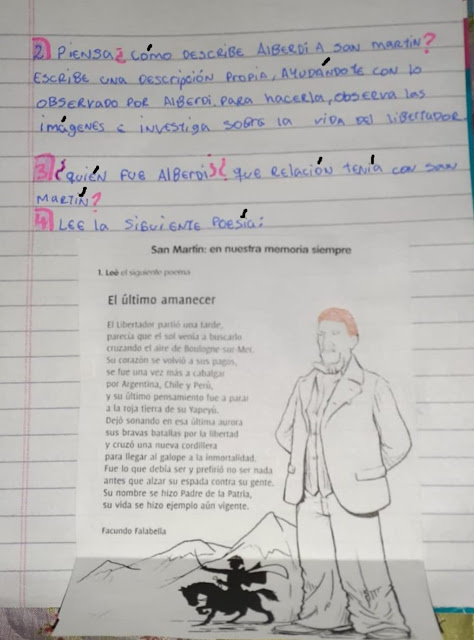 2) PIENSA ¿CÓMO DESCRIBE ALBERDI A SAN MARTÍN?
ESCRIBE UNA DESCRIPCIÓN PROPIA, AYUDÁNDOTE CON LO
OBSERVADO POR ALBERDI. PARA HACERLA, OBSERVA LAS
IMÁGENES E INVESTIGA SOBRE LA VIDA DEL LIBERTADOR
3) ¿QUIÉN FUE ALBERDI? ¿QUE RELACIÓN TENÍA CON SAN
MARTÍN?
4) LEE LA SIGUIENTE POESÍA:
San Martín: en nuestra memoria siempre
1. Leé el siguiente poema
El último amanecer
El Libertador partió una tarde,
parecía que el sol venía a buscarlo
cruzando el aire de Boulogne-sur-Mer.
Su corazón se volvió a sus pagos,
se fue una vez más a cabalgar
por Argentina, Chile y Perú,
y su último pensamiento fue a parar
a la roja tierra de su Yapeyú.
Dejó sonando en esa última aurora
sus bravas batallas por la libertad
y cruzó una nueva cordillera
para llegar al galope a la inmortalidad.
Fue lo que debía ser y prefirió no ser nada
antes que alzar su espada contra su gente.
Su nombre se hizo Padre de la Patria,
su vida se hizo ejemplo aún vigente.
Facundo Falabella